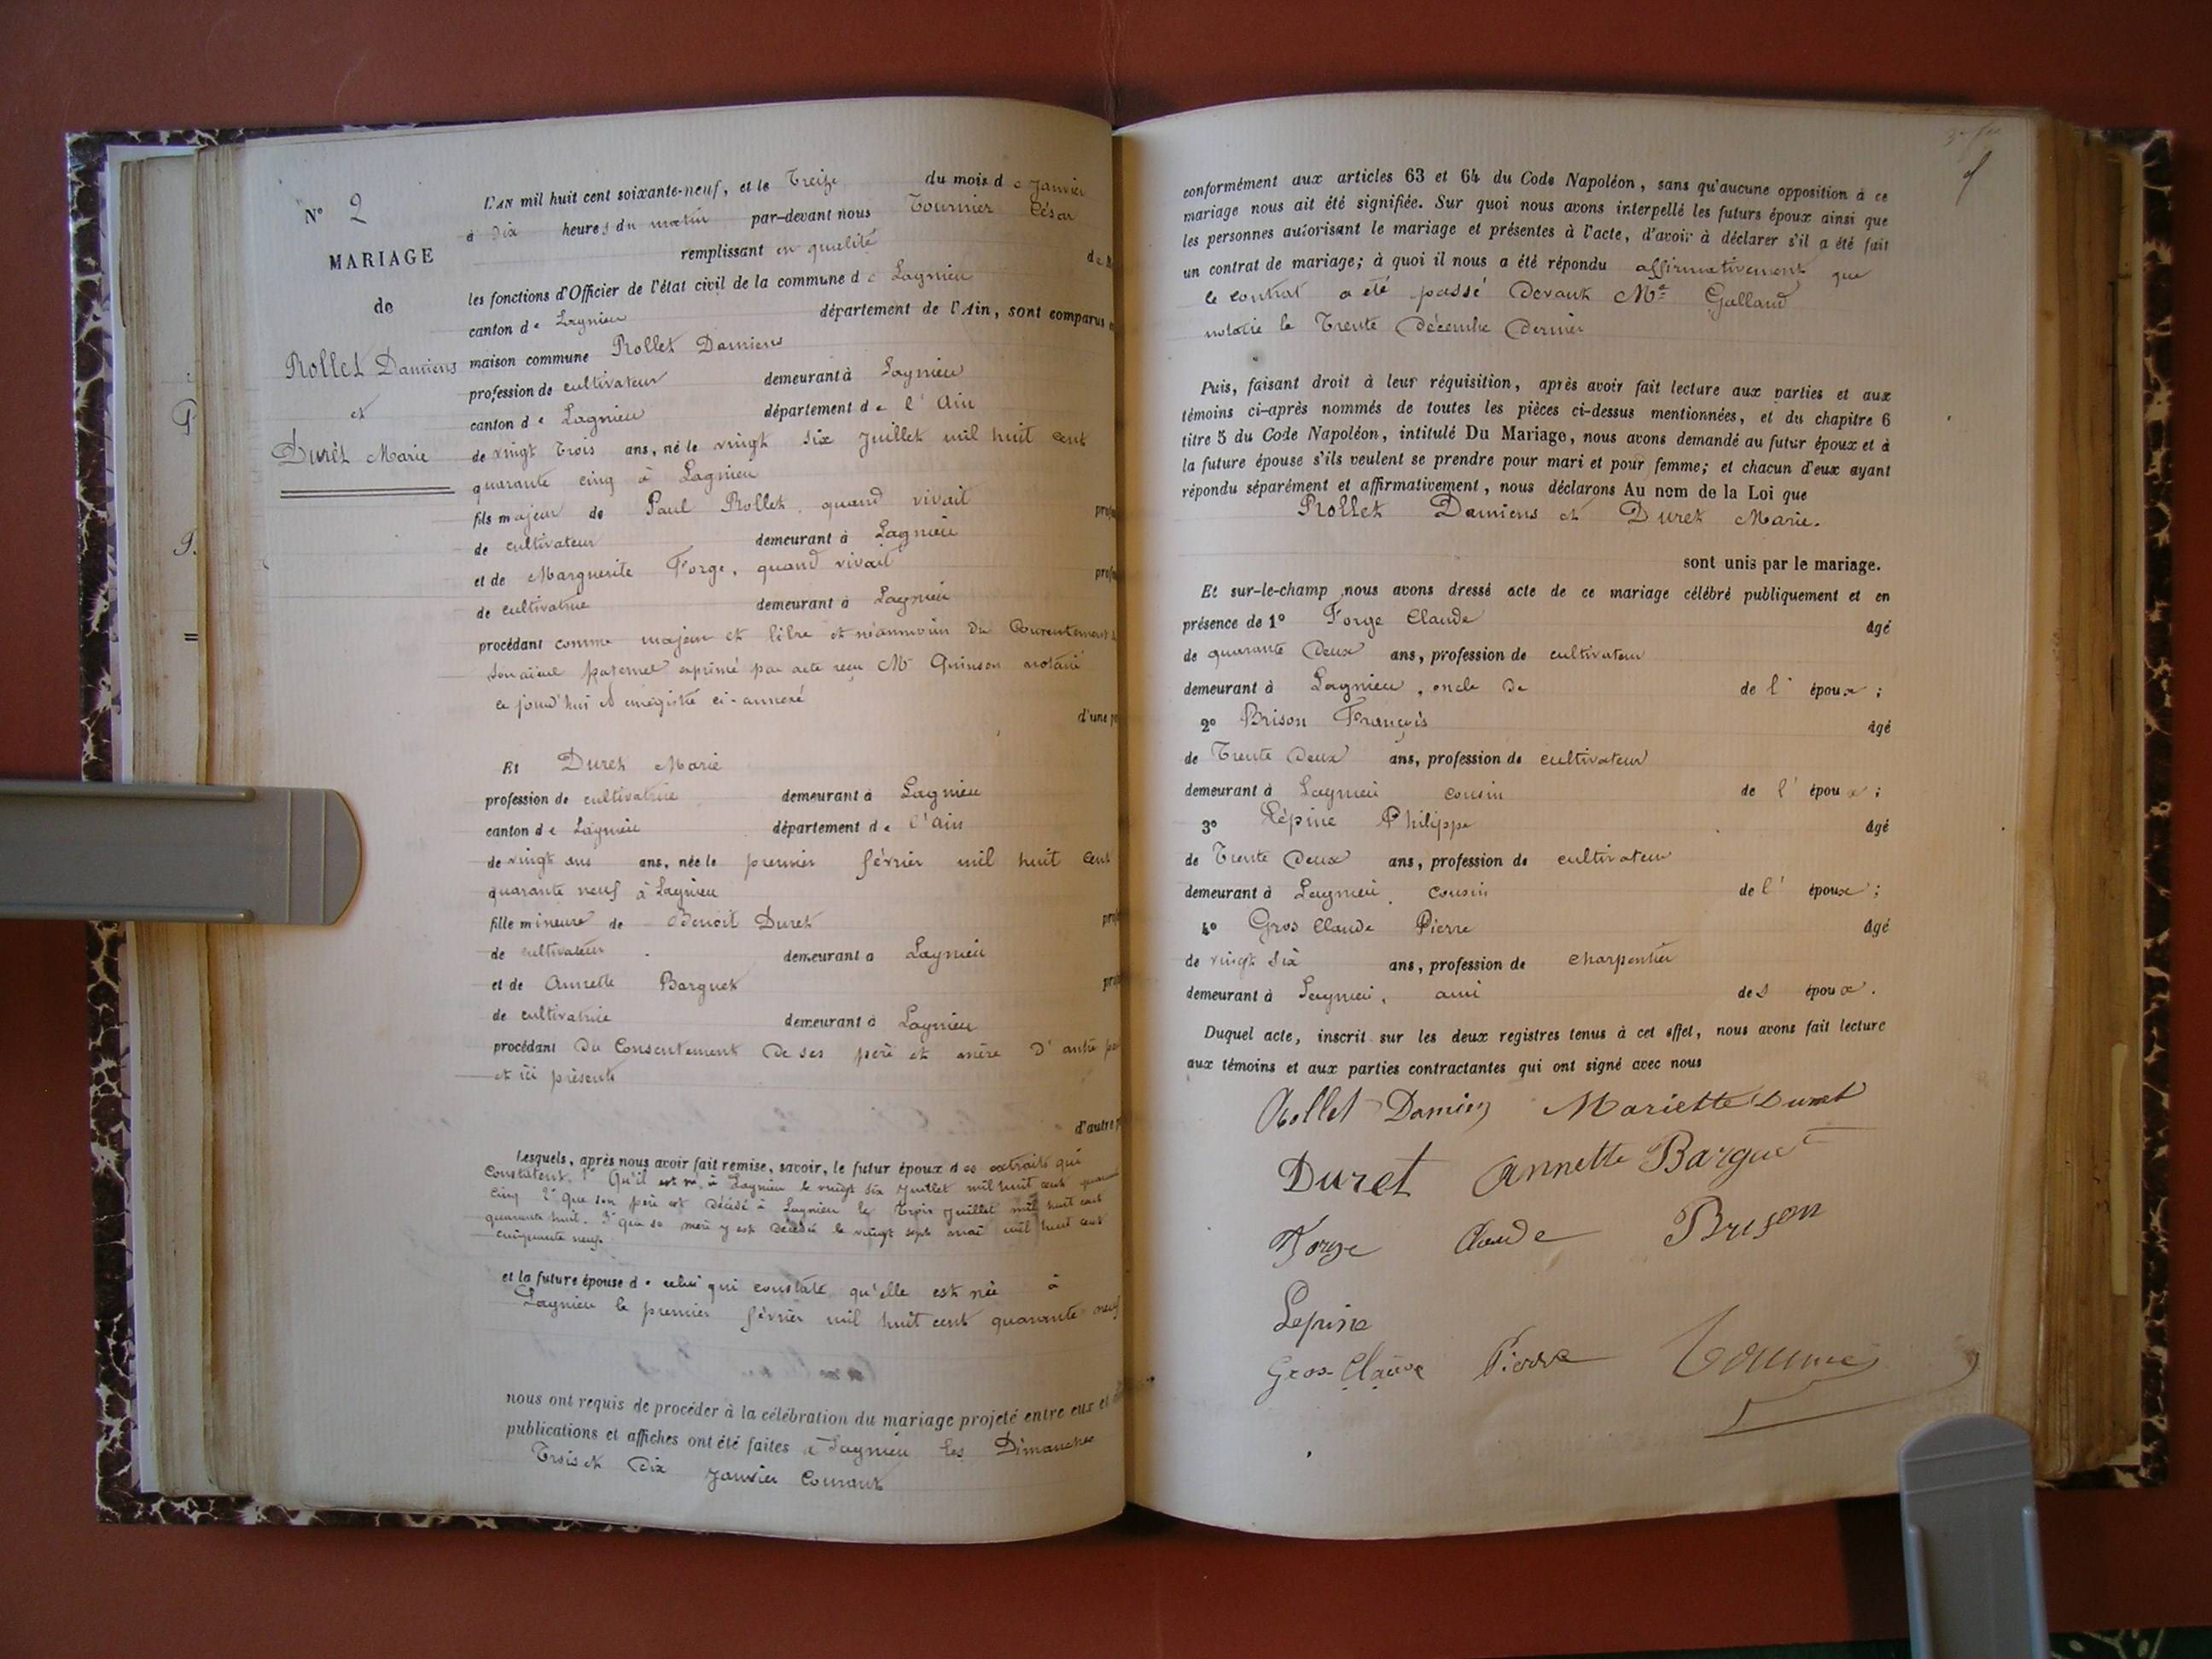 N° 2
MARIAGE
de
Rollet Damiens
et
Duret Marie
L'AN mil huit cent soixante-neuf, et le Treize du mois de Janvier
à Dix heures du matin par-devant nous Tournier César
remplissant en qualité de
les fonctions d'Officier de l'état civil de la commune de Lagnieu
canton de Lagnieu département de l'Ain, sont comparus
maison commune Rollet Damiens
profession de cultivateur demeurant à Lagnieu
canton de Lagnieu département de l'Ain
de vingt Trois ans, né le vingt Six Juillet mil huit cent
quarante cinq à Lagnieu
fils majeur de Paul Rollet, quand vivait
de cultivateur demeurant à Lagnieu
et de Marguerite Forge, quand vivait
de cultivatrice demeurant à Lagnieu
procédant comme majeur et libre et néanmoins du Consentement
son aïeul paternel exprimé par acte reçu Me Quinson notaire
ce jourd'hui et enregistré ci-annexé
d'une
Et Duret Marie
profession de cultivatrice demeurant à Lagnieu
canton de Lagnieu département de l'Ain
de vingt ans ans, née le premier février mil huit cent
quarante neuf à Lagnieu
fille mineure de Benoit Duret
de cultivateur demeurant à Lagnieu
et de Annette Barguet
de cultivatrice demeurant à Lagnieu
procédant Du Consentement de ses père et mère D'autre
et ici présents
d'autre
Lesquels, après nous avoir fait remise, savoir, le futur époux des extraits qui
Constatent, 1° Qu'il est né à Lagnieu le vingt six Juillet mil huit cent quarante
cinq 2° que son père est décédé à Lagnieu le Trois Juillet mil huit cent
quarante huit. 3° que sa mère y est décédée le vingt sept mai mil huit cent
cinquante neuf.
et la future épouse de celui qui constate qu'elle est née à
Lagnieu le premier février mil huit cent quarante neuf
nous ont requis de procéder à la célébration du mariage projeté entre eux et
publications et affiches ont été faites à Lagnieu les Dimanches
Trois et Dix Janvier Courant
conformément aux articles 63 et 64 du Code Napoléon, sans qu'aucune opposition à ce
mariage nous ait été signifiée. Sur quoi nous avons interpellé les futurs époux ainsi que
les personnes autorisant le mariage et présentes à l'acte, d'avoir à déclarer s'il a été fait
un contrat de mariage; à quoi il nous a été répondu affirmativement, que
le contrat a été passé Devant Me Galland
notaire le Trente Décembre Dernier
Puis, faisant droit à leur réquisition, après avoir fait lecture aux parties et aux
témoins ci-après nommés de toutes les pièces ci-dessus mentionnées, et du chapitre 6
titre 5 du Code Napoléon, intitulé Du Mariage, nous avons demandé au futur époux et à
la future épouse s'ils veulent se prendre pour mari et pour femme; et chacun d'eux ayant
répondu séparément et affirmativement, nous déclarons Au nom de la Loi que
Rollet Damiens et Duret Marie.
sont unis par le mariage.
Et sur-le-champ nous avons dressé acte de ce mariage célébré publiquement et en
présence de 1° Forge Claude âgé
de quarante Deux ans, profession de cultivateur
demeurant à Lagnieu, oncle de de l'époux;
2° Brison François âgé
de Trente Deux ans, profession de cultivateur
demeurant à Lagnieu cousin de l'époux;
3° Lépine Philippe âgé
de Trente Deux ans, profession de cultivateur
demeurant à Lagnieu, cousin de l'époux;
4° Gros Claude Pierre âgé
de vingt Six ans, profession de charpentier
demeurant à Lagnieu, ami des époux.
Duquel acte, inscrit sur les deux registres tenus à cet effet, nous avons fait lecture
aux témoins et aux parties contractantes qui ont signé avec nous
Rollet Damien Mariette Duret
Duret Annette Barguet
Forge Claude Brison
Lepine
Gros-Claude Pierre Tournier